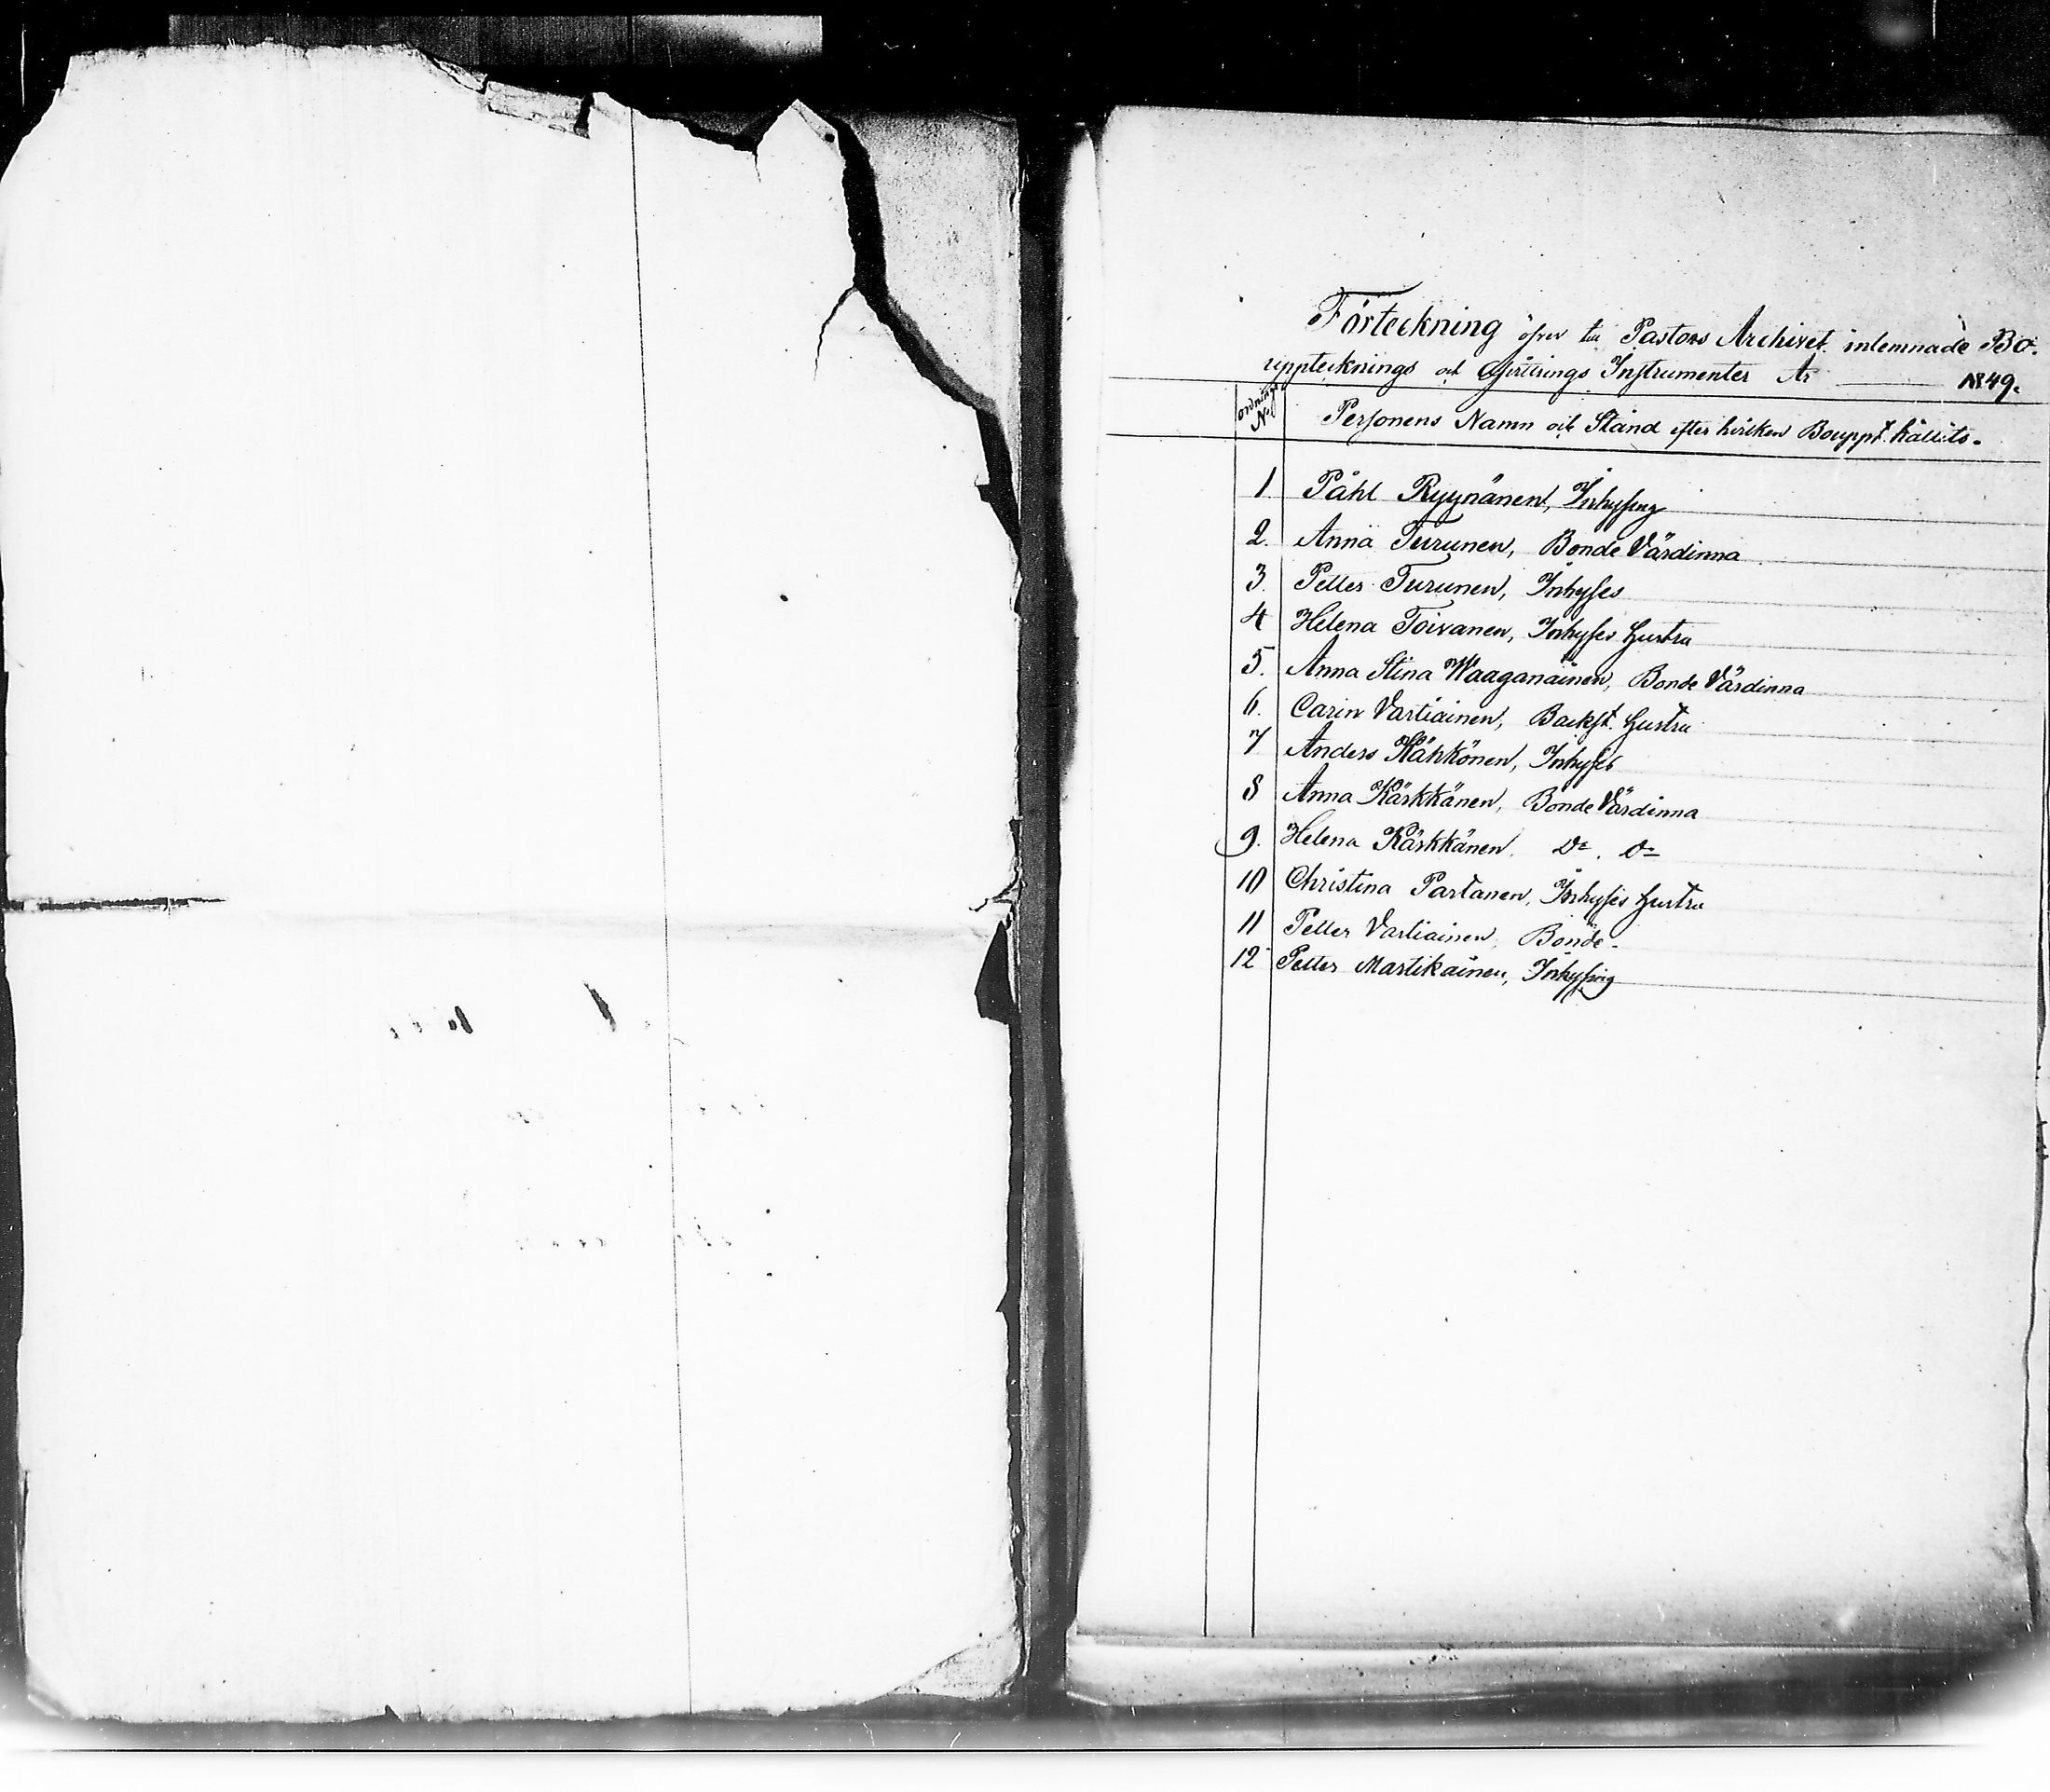 Förteckning öfver till Pastors Archivet inlemnade Bo-
upptecknings och Afvittrings Instrumenter År 1849.
Ordnings No Personens Namn och Stånd efter hvilken Bouppt. hållits.
1. Påhl Ryynänen, Inhysing
2. Anna Turunen, Bonde Värdinna
3. Petter Turunen, Inhyses
4 Helena Toivanen, Inhyses Hustru
5. Anna Stina Waaganainen, Bonde Värdinna
6. Carin Vartiainen, Backst. Hustru
7 Anders Kähkönen, Inhyses
8 Anna Kärkkänen, Bonde Värdinna
9. Helena Kärkkänen. Do. Do
10 Christina Partanen, Inhyses Hustru
11 Petter Vartiainen, Bonde.
12 Petter Martikainen, Inhysing